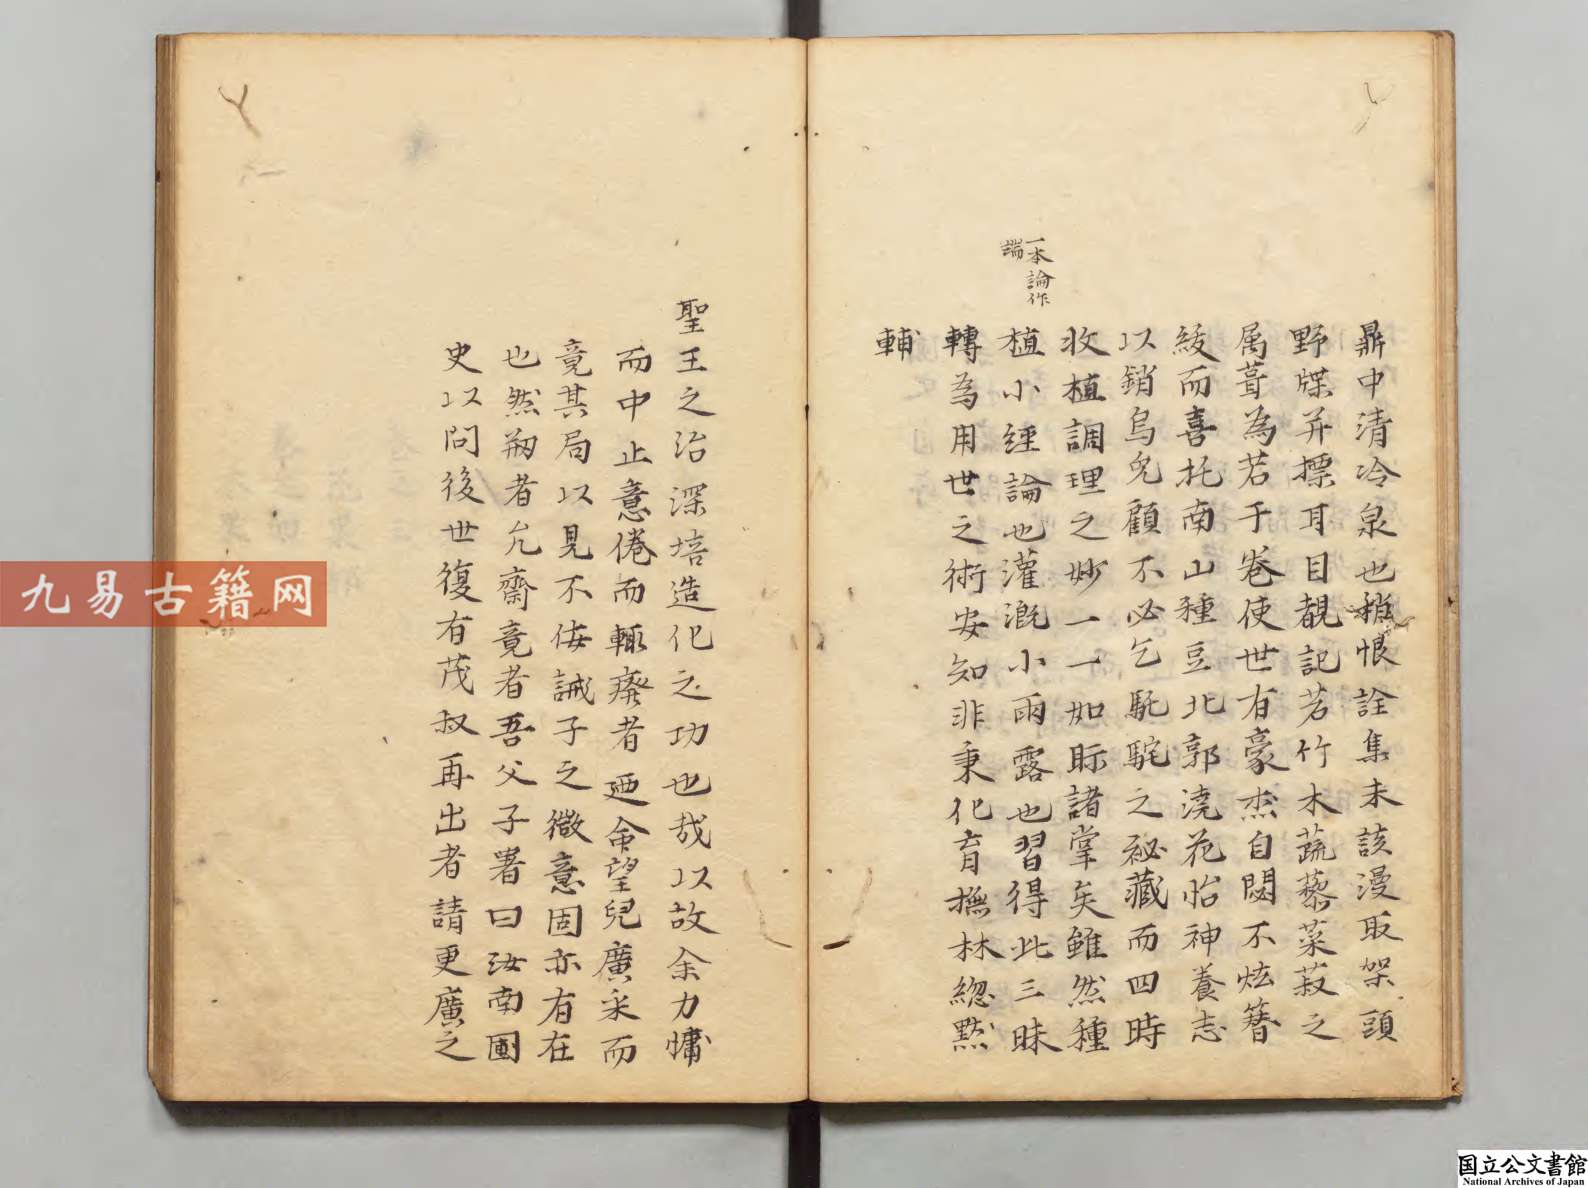 鼎中清冷泉也稍恨詮集未該漫取架頭
野牒并摽耳目覩記若竹木蔬藜菜菽之
属葺為若干卷使世有豪杰自閟不炫簪
綬而喜托南山種豆北郭澆花怡神養志
以銷烏兔顧不必乞駝駝之祕藏而四時
收植調理之妙一一如眎諸掌矣雖然種
一本論作
端
植小經論也灌漑小雨露也習得此三昧
轉為用世之術安知非秉化育撫林緫黙
輔
聖王之治深培造化之功也哉以故余力慵
而中止意倦而輒癈者廼命望兒廣采而
竟其局以見不侮誡子之微意固亦有在
也然剏者允齋竟者吾父子署曰汝南圃
史以問後世復有茂叔再出者請更廣之
九易古籍网
国立公文書館
National Archives of Japan